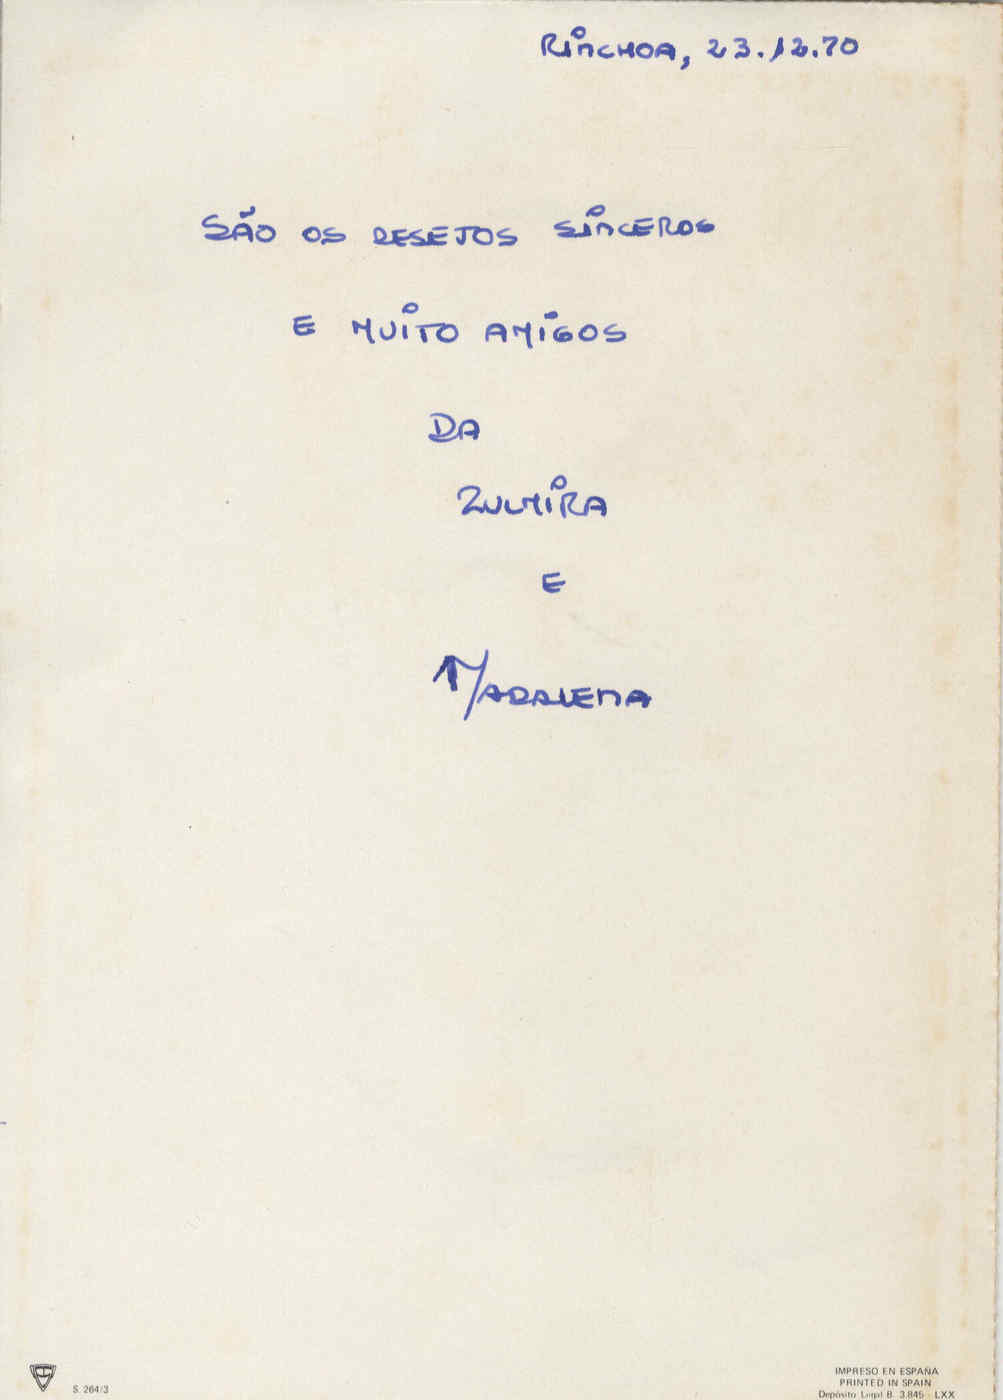 Rinchoa, 23.12.70
São os desejos sinceros
e muito amigos
da
Zulmira
e
Madalena
S. 264/3
IMPRESO EN ESPAÑA
PRINTED IN SPAIN
Depósito Legal B. 3.845 - LXX